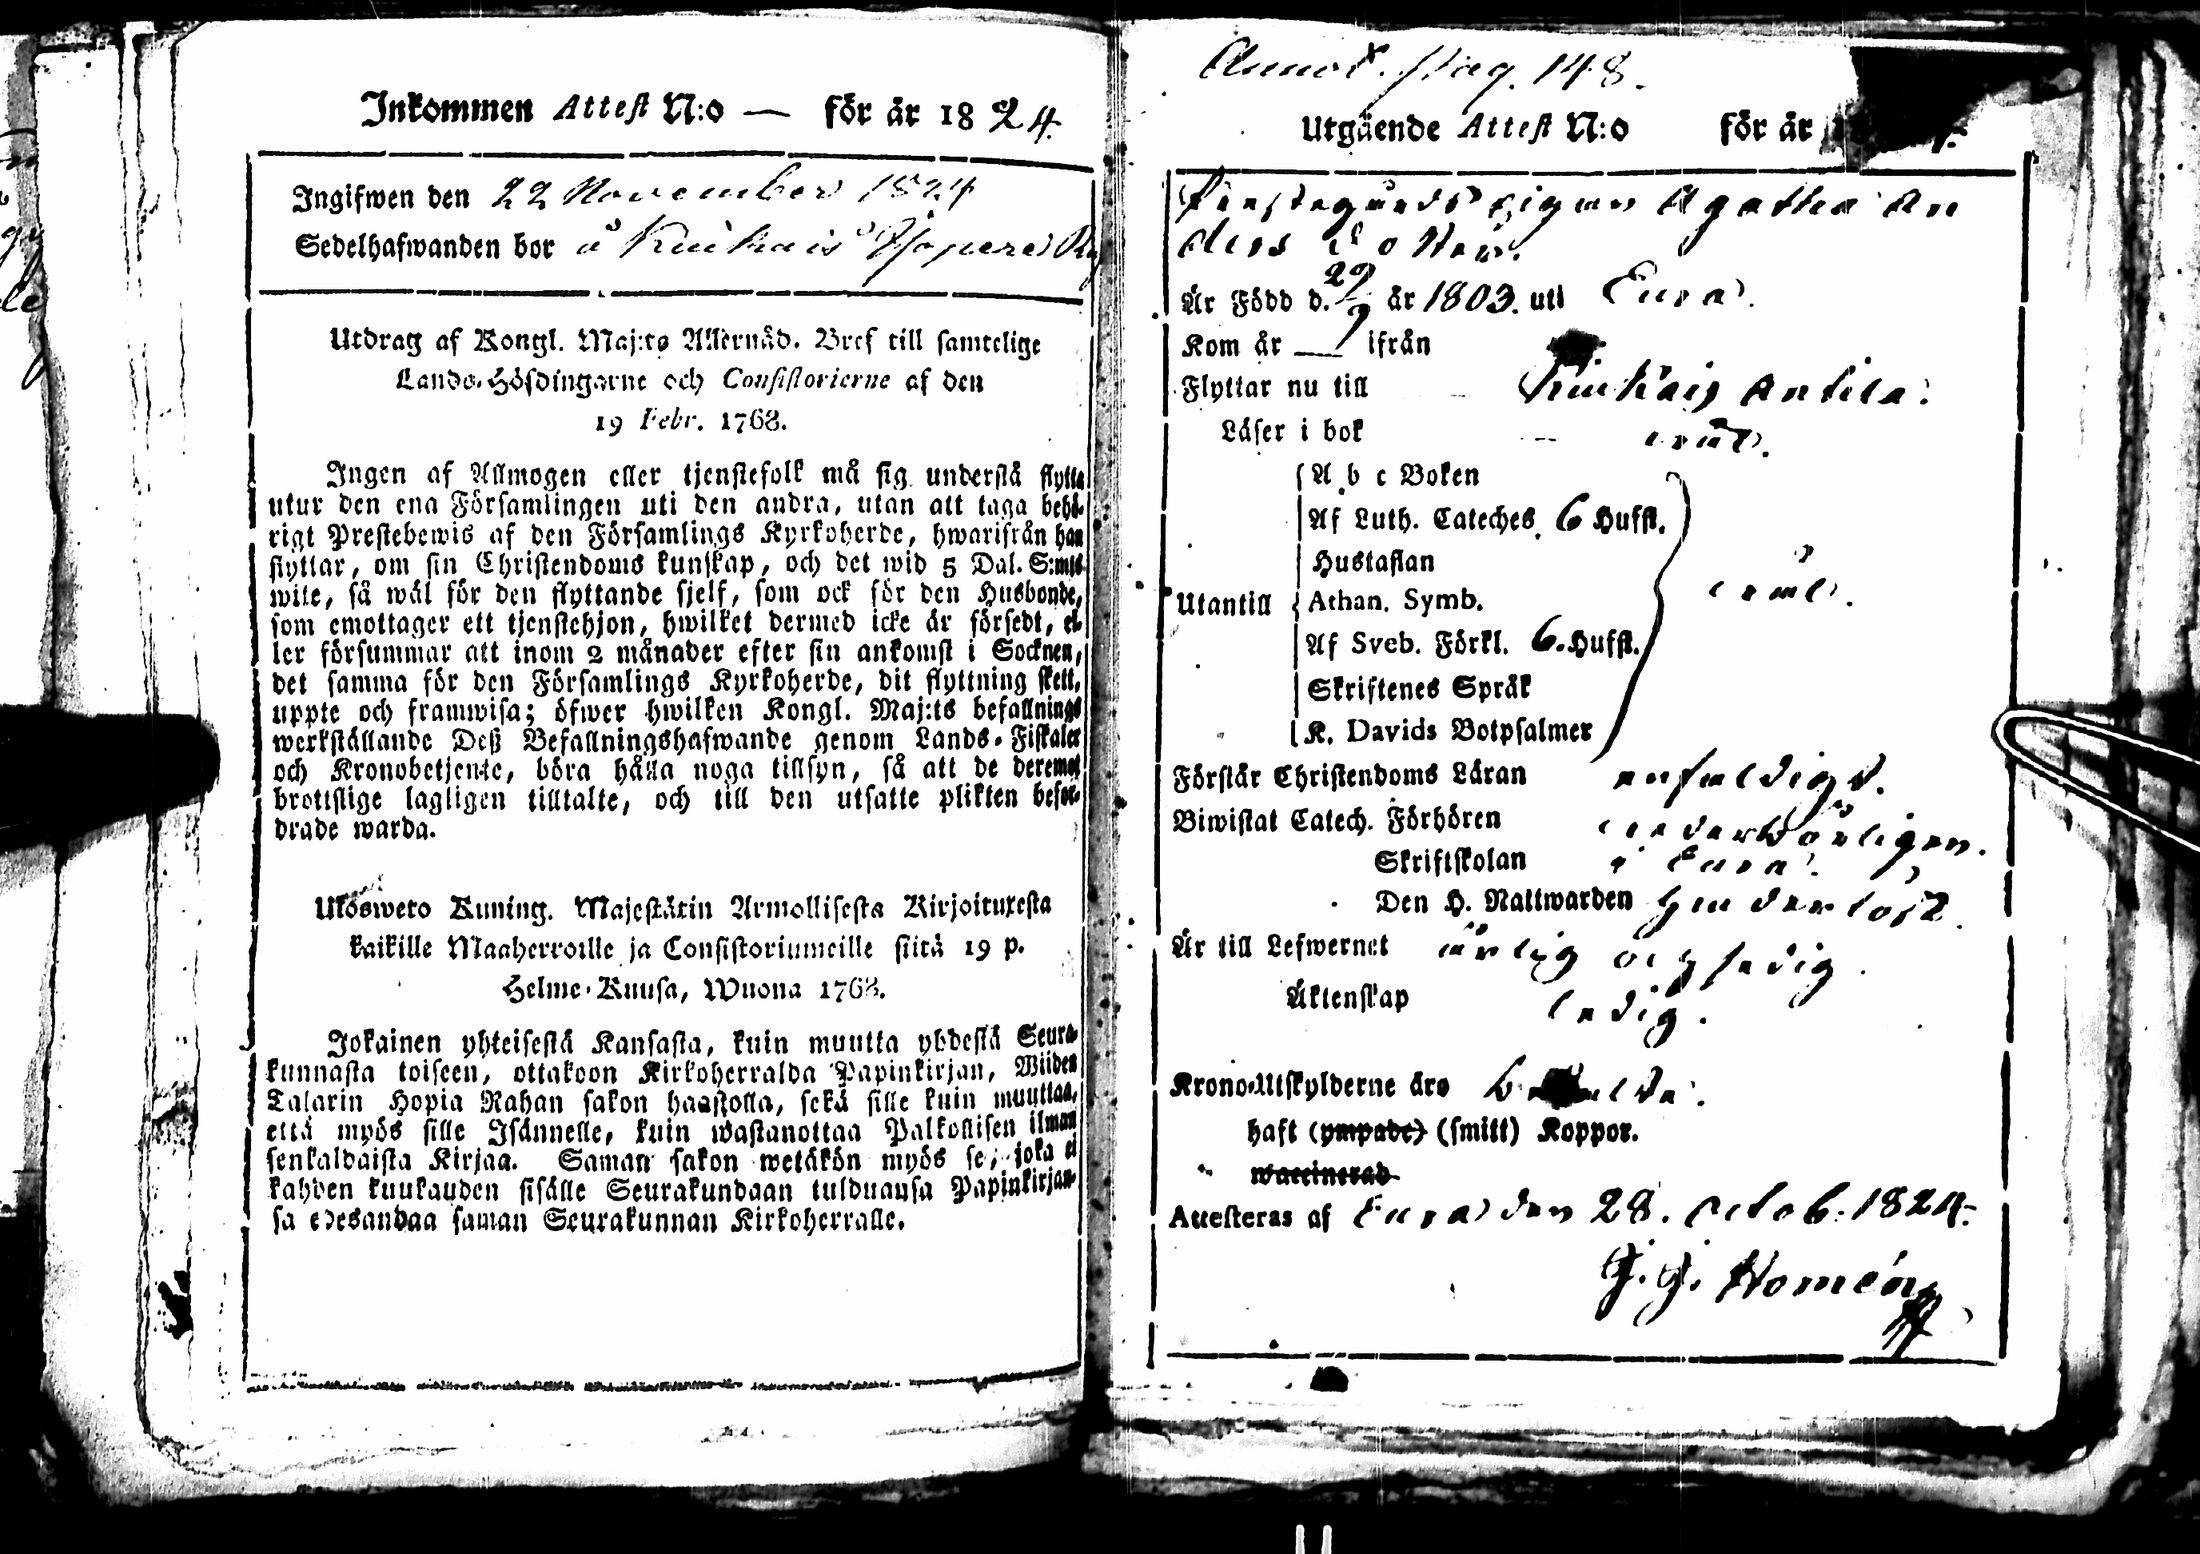 Inkommen Attest N:o — för år 1824.
Ingifwen den 22 November 1824
Sedelhafwanden bor å Kiukais
Utdrag af Kongl. Maj:ts Allernåd. Bref till samtelige
Lands-Höfdingarne och Consistorierne af den
19 Febr. 1768.
Ingen af Allmogen eller tjenstefolk må sig understå flytta
utur den ena Församlingen uti den andra, utan att taga behö-
rigt Prestebewis af den Församlings Kyrkoherde, hwarifrån han
flyttar, om sin Christendoms kunskap, och det wid 5 Dal. S:mts
wite, så wäl för den flyttande sjelf, som ock för den Husbonde,
som emottager ett tjenstehjon, hwilket dermed icke är försedt, el-
ler försummar att inom 2 månader efter sin ankomst i Socknen,
det samma för den Församlings Kyrkoherde, dit flyttning skett,
uppte och framwisa; öfwer hwilken Kongl. Maj:ts befallnings
werkställande Deß Befallningshafwande genom Lands-Fiskaler
och Kronobetjente, böra hålla noga tillsyn, så att de deremot
brottslige lagligen tilltalte, och till den utsatte plikten befor-
drade warda.
Ulosweto Kuning. Majestätin Armollisesta Kirjoituxesta
kaikille Maaherroille ja Consistoriumeille siitä 19 p.
Helme-Kuusa, Wuona 1768.
Jokainen yhteisestä Kansasta, kuin muutta yhdestä Seura-
kunnasta toiseen, ottakoon Kirkoherralda Papinkirjan, Wiiden
Talarin Hopia Rahan sakon haastolla, sekä sille kuin muuttaa,
että myös sille Isännelle, kuin wastanottaa Palkollisen ilman
senkaldaista Kirjaa. Saman sakon wetäkön myös se, joka ei
kahden kuukauden sisälle Seurakundaan tulduansa Papinkirjan-
sa edesandaa saman Seurakunnan Kirkoherralle.
Annot. pag. 148.
Utgående Attest N:o för år
pigan Agatha An
ders Dotter.
Är Född d. 29/9 år 1803. uti Eura.
Kom år — ifrån
Flyttar nu till Kiukais Antila.
Läser i bok
A b c Boken
Af Luth. Cateches. 6 Hufst.
Hustaflan
Utantill Athan. Symb.
Af Sveb. Förkl. 6. Hufst.
Skriftenes Språk
K. Davids Botpsalmer
Förstår Christendoms Läran enfaldigt.
Biwistat Catech. Förhören wederbörligen.
Skriftskolan i Eura.
Den H. Nattwarden hinderlöst.
Är till Lefwernet ärlig och sedig.
Äktenskap ledig.
Krono-Utskylderne äro betalda.
haft (ympade) (smitt) Koppor.
waccinerad
Attesteras af Eura den 28. Octob. 1824.
G. G. Homén